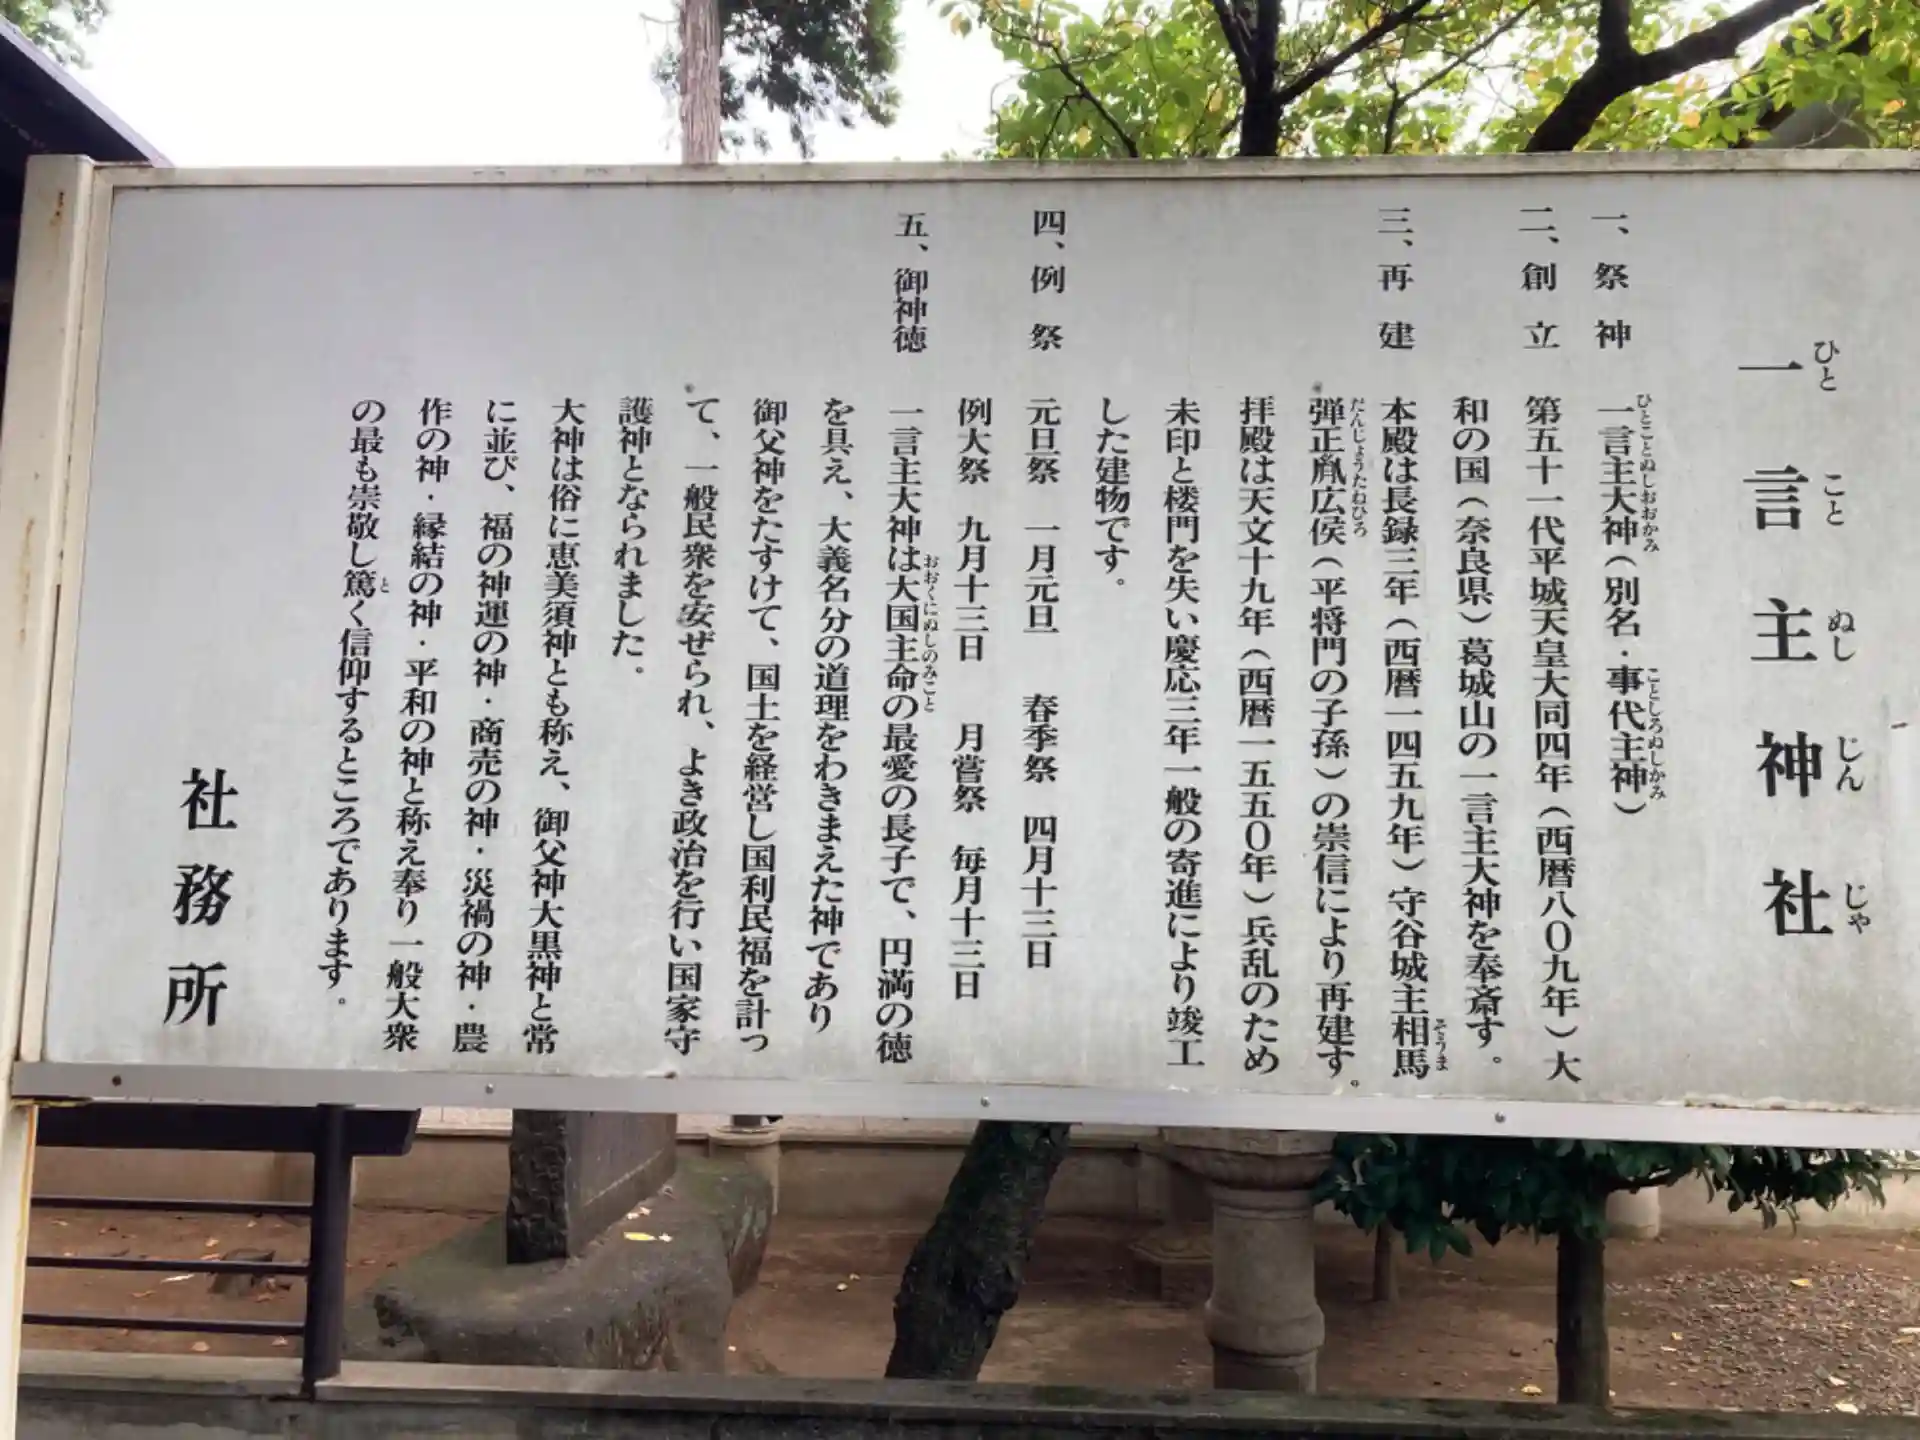 一言主神社
ひとことぬしじんじゃ
一、祭神 一言主大神（別名・事代主神）
ひとことぬしおおかみ ことしろぬしかみ
二、創立 第五十一代平城天皇大同四年（西暦八〇九年）大
和の国（奈良県）葛城山の一言主大神を奉斎す。
三、再建 本殿は長録三年（西暦一四五九年）守谷城主相馬
そうま
弾正胤広侯（平将門の子孫）の崇信により再建す。
だんじょうたねひろ
拝殿は天文十九年（西暦一五五〇年）兵乱のため
未印と楼門を失い慶応三年一般の寄進により竣工
した建物です。
四、例祭 元旦祭 一月元旦 春季祭 四月十三日
例大祭 九月十三日 月嘗祭 毎月十三日
五、御神徳 一言主大神は大国主命の最愛の長子で、円満の徳
おおくにぬしのみこと
を具え、大義名分の道理をわきまえた神であり
御父神をたすけて、国土を経営し国利民福を計っ
て、一般民衆を安ぜられ、よき政治を行い国家守
護神となられました。
大神は俗に恵美須神とも称え、御父神大黒神と常
に並び、福の神運の神・商売の神・災禍の神・農
作の神・縁結の神・平和の神と称え奉り一般大衆
の最も崇敬し篤く信仰するところであります。
と
社務所